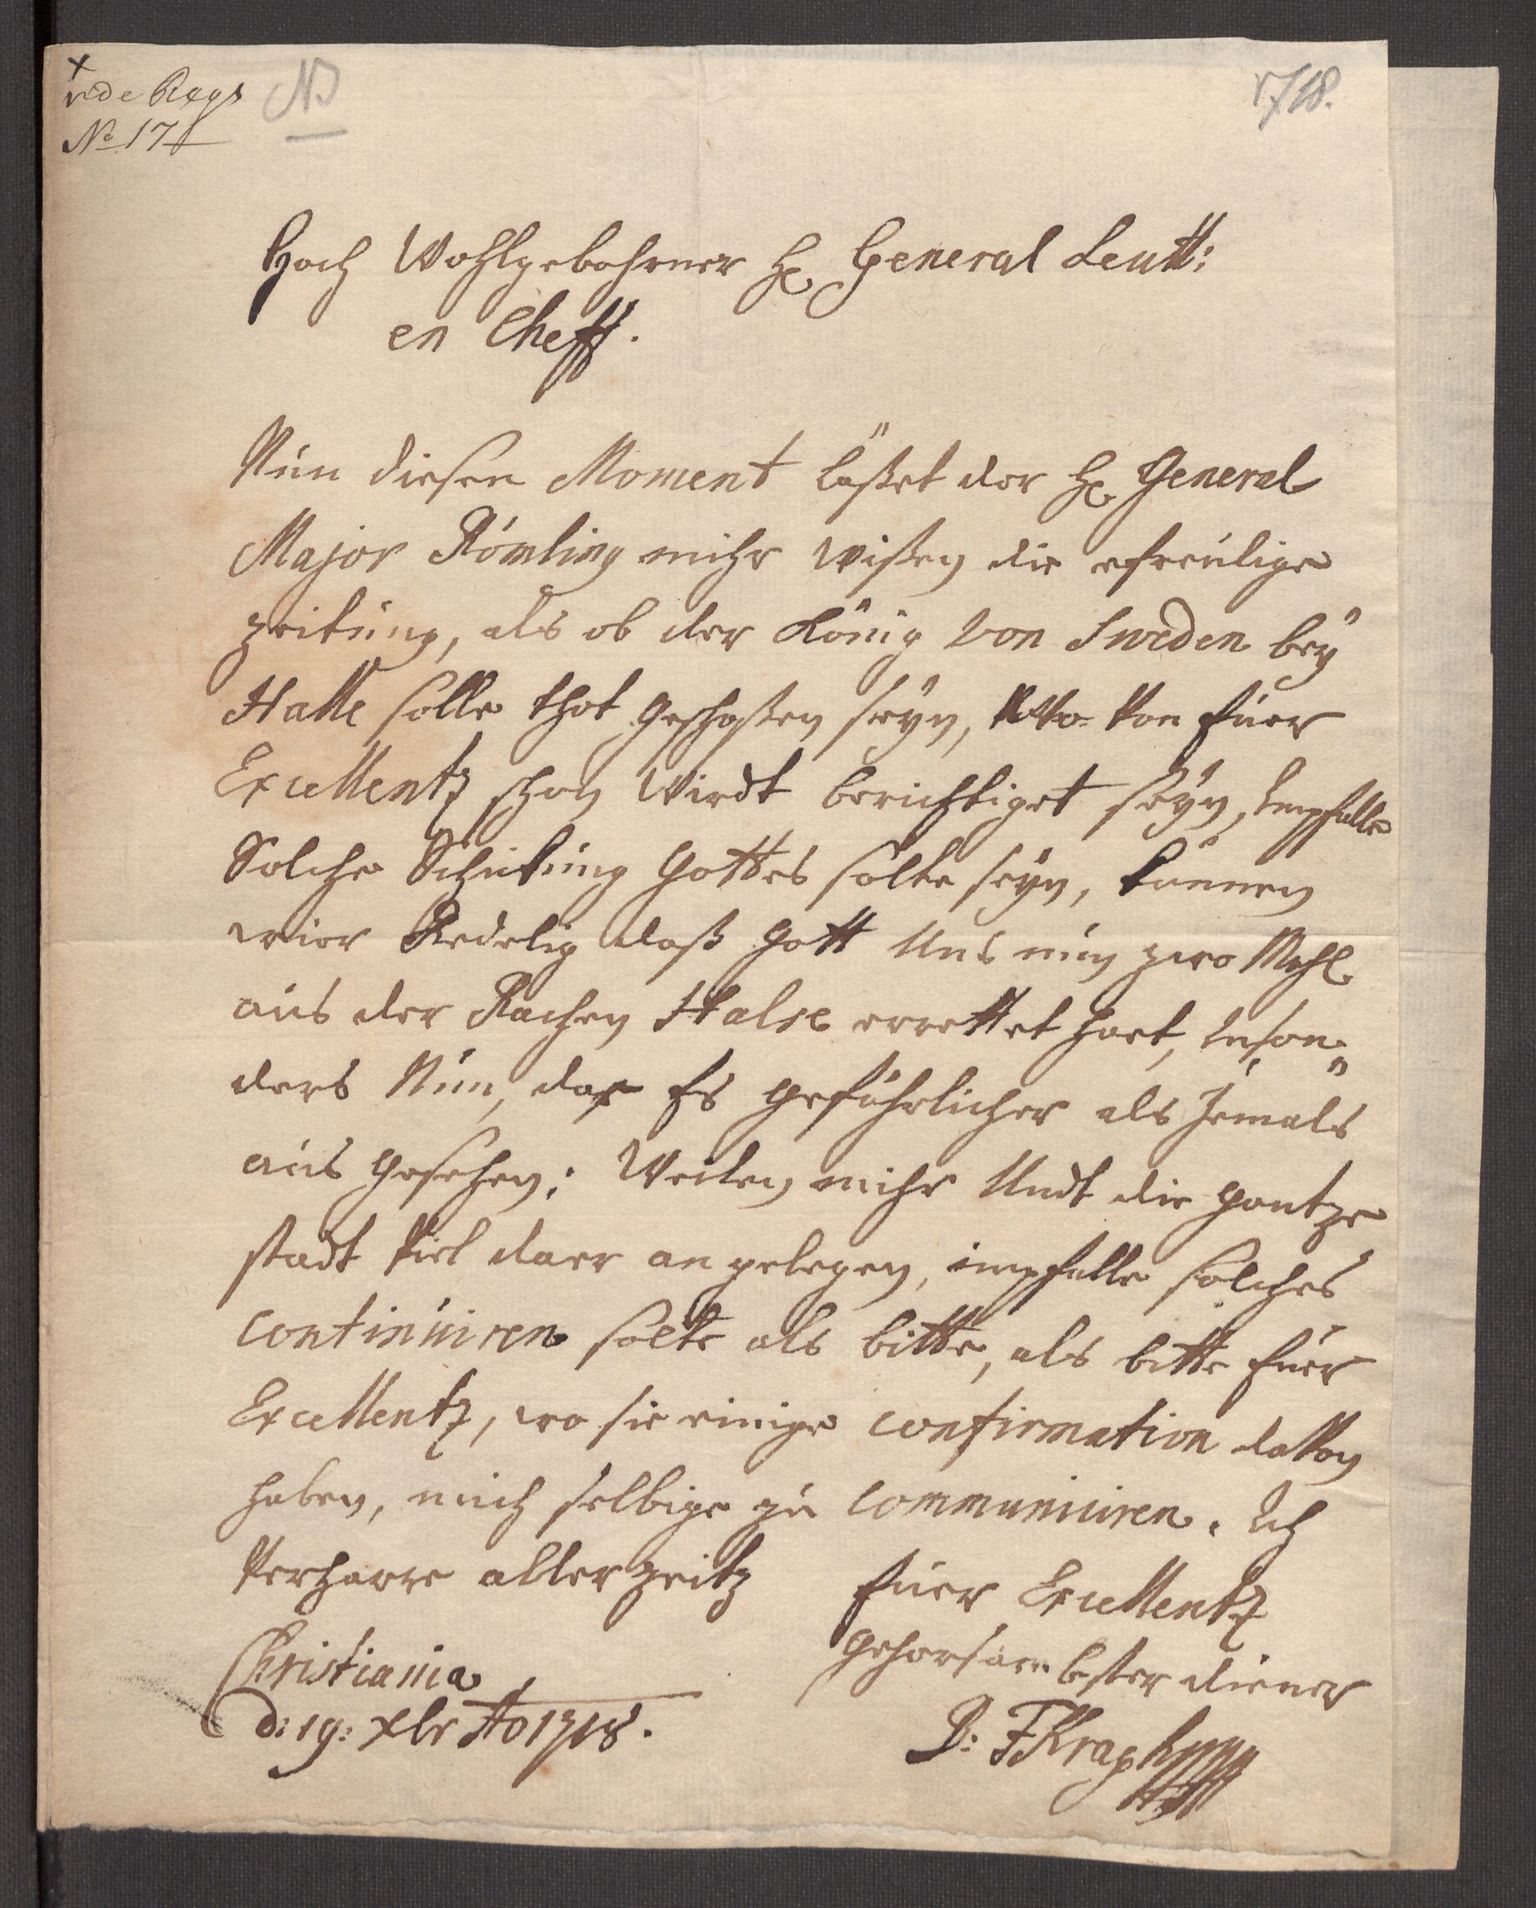 x
vide Regs
No 17
NB
1718.
Hoch Wohlgebohrner Hr General Leutt:
en Cheff.
Nun diesen Moment läßet der Hr General
Major Römling mihr wißen die efreulige
zeitung, als ob der König von Sweden bey
Halle solle thot geschoßen seyn, von Euer
Excellentz schon wirdt berichtiget seyn, impfalle
Solche Schikung Gottes solte seyn, können
wier Redelig daß Gott Uns nun zwo Mahl
aus der Rachen Halse errettet haet, beson„
ders Nun, da Es gefährlicher als Jemals
aus gesehen; Weilen mihr Undt die gantze
stadt viel daer an gelegen, impfalle solches
continuiren solte als bitte, als bitte Euer
Excellentz, wo sie einige confirmation davon
haben, mich selbige zu communiciren. Ich
verharre aller zeitz Euer Excellentz
gehorsambster diener
Christiania
d: 19: xbr Ao 1718. B: F Kragh